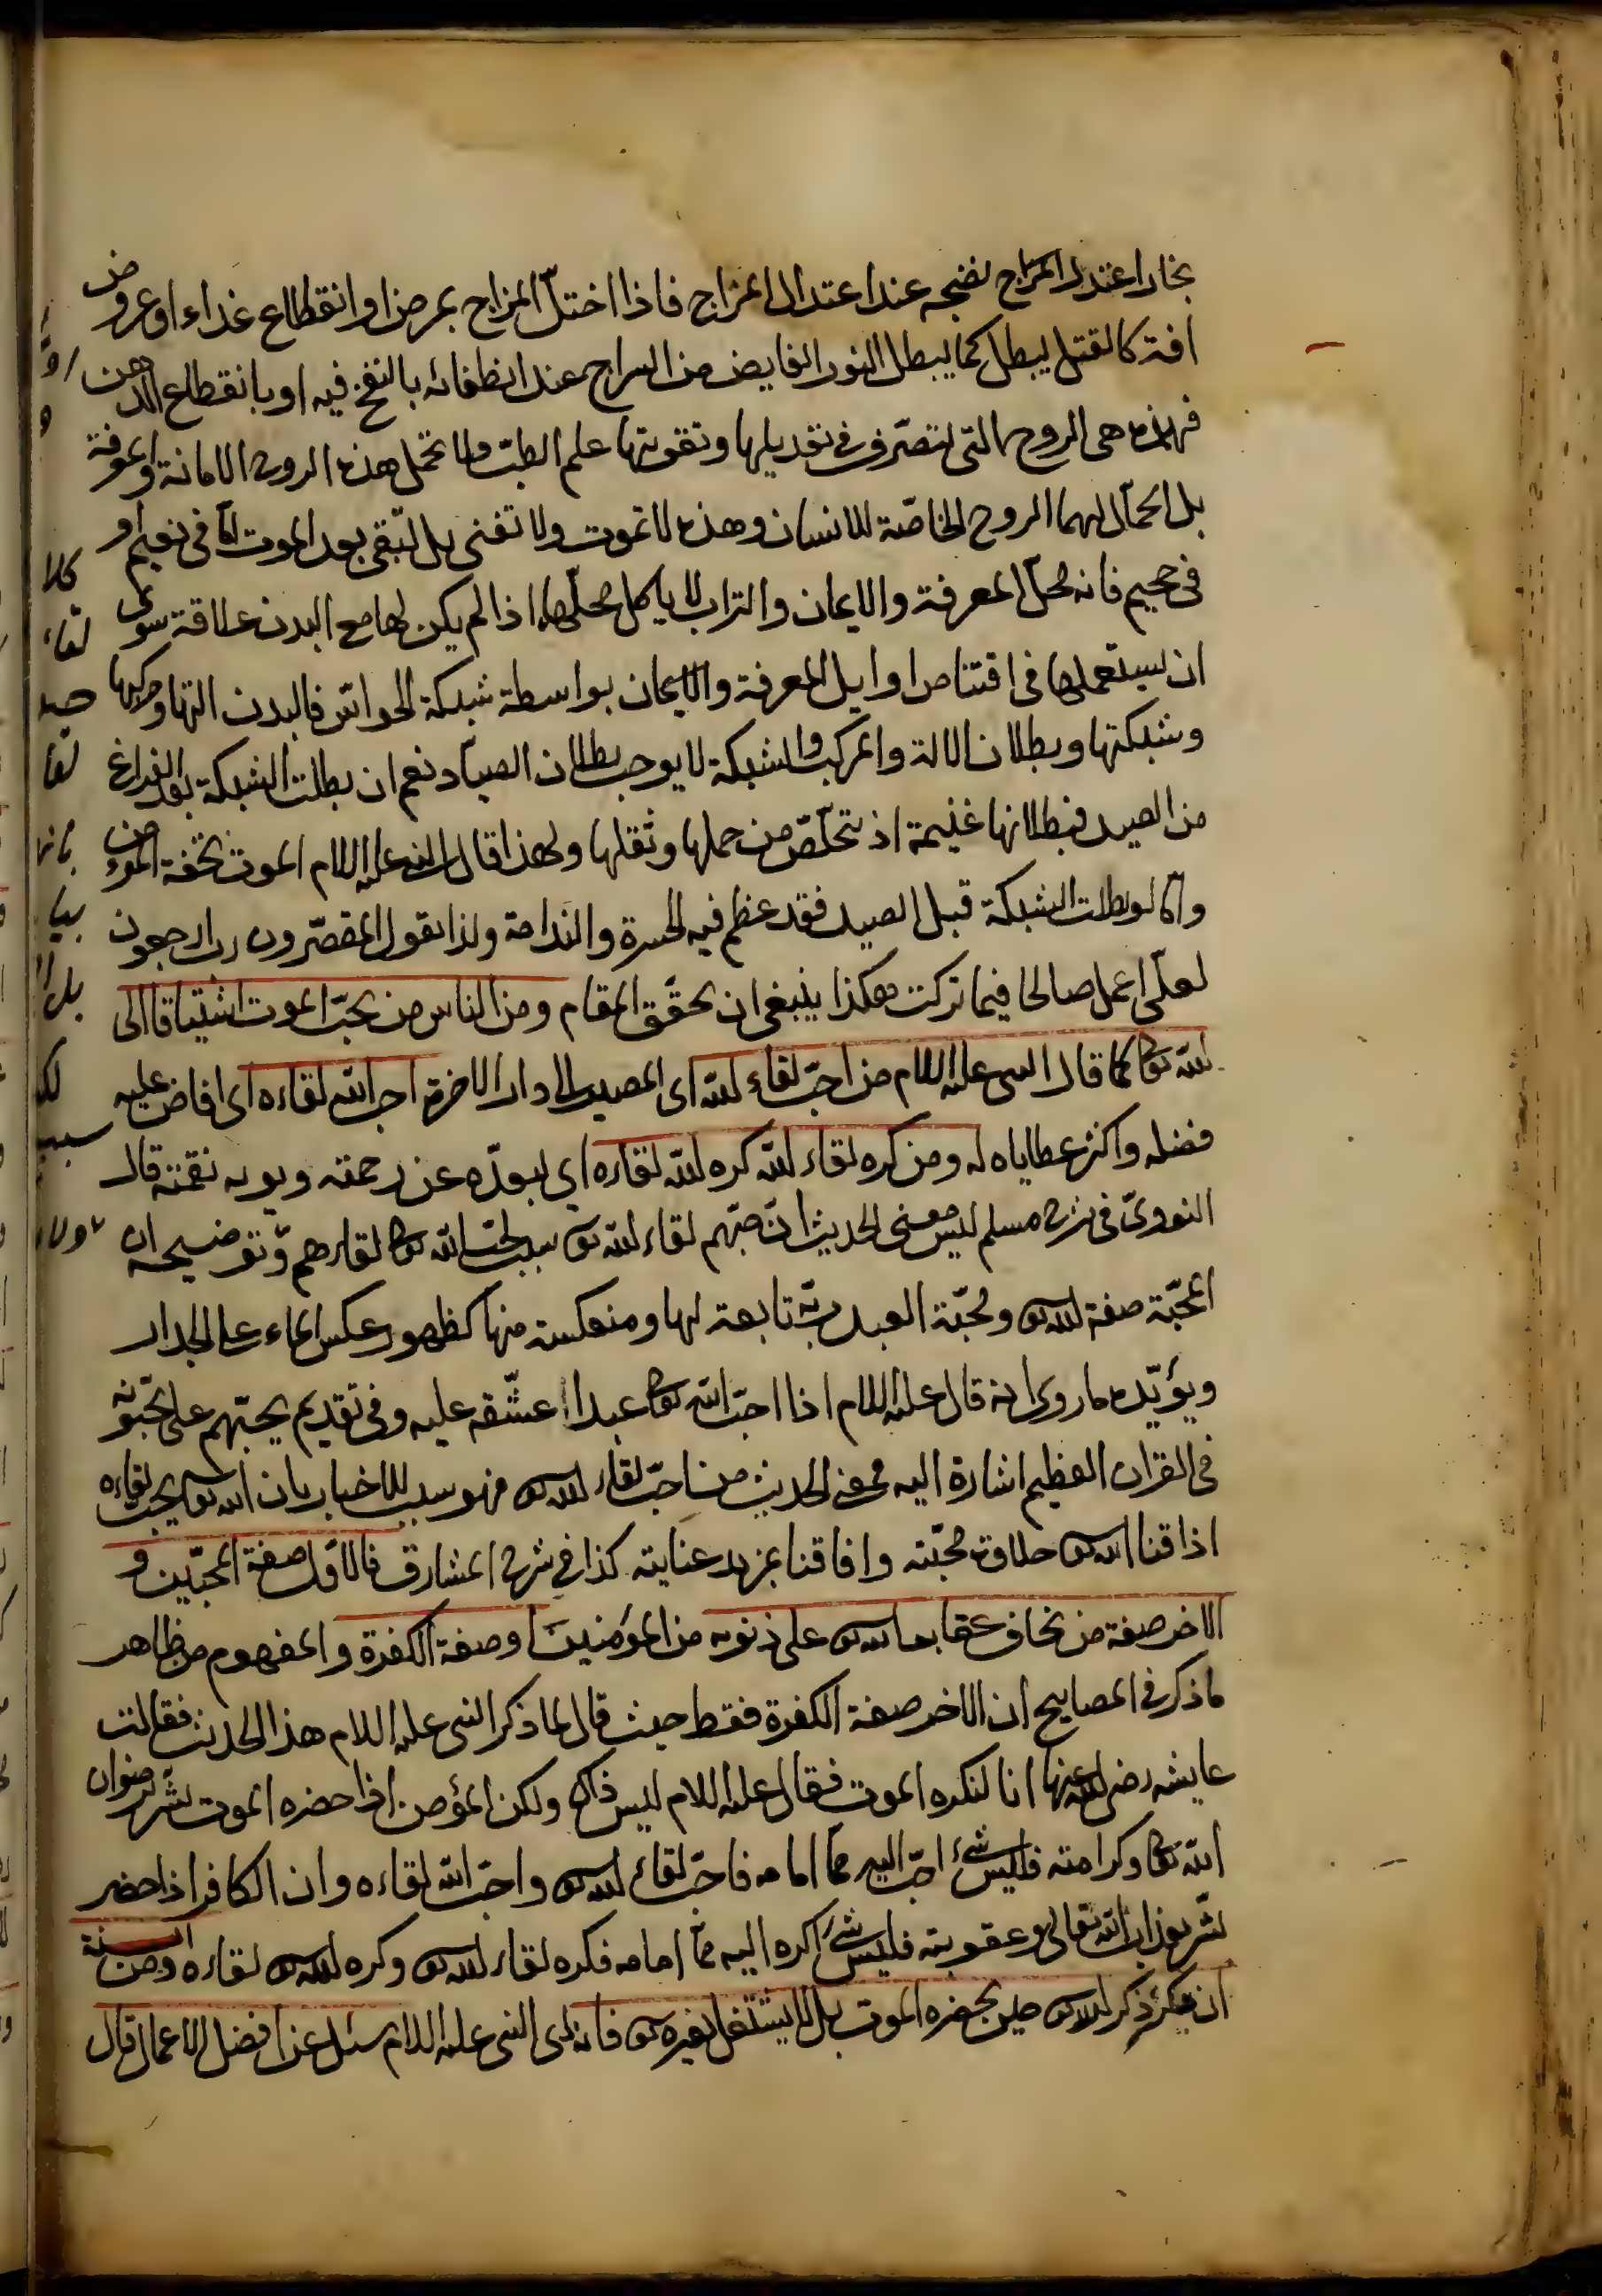 بخار اعتدل المزاج نضجه عند اعتدال المزاج فاذا اختلّ المزاج بمرض او انقطاع غداء او عروض
افة كالقتل يبطل كما يبطل النور الفايض من السراج عند انطفائه بالنفخ فيه او بانقطاع الدهن
فهذه هى الروح التى يتصرّف فى تعديلها وتقويتها علم الطبّ ولا تحمل هذه الروح الامانة والمعرفة
بل الحمّال لهما الروح الخاصّة للانسان وهذه لا تموت ولا تفنى بل تبقى بعد الموت امّا فى نعيم او
فى جحيم فانه محلّ المعرفة والايمان والتراب لا ياكل محلّهما اذا لم يكن لها مع البدن علاقة سوى
ان يستعملها فى اقتناص اوايل المعرفة والايمان بواسطة شبكة الحواسّ فالبدن التها ومركبها
وشبكتها وبطلان الالة والمركب والشبكة لا يوجب بطلان الصياد نعم ان بطلت الشبكة بعد الفراغ
من الصيد فبطلانها غنيمة اذ يتخلّص من حملها وثقلها ولهذا قال النبى عليه السلام الموت تحفة المؤمن
وامّا لو بطلت الشبكة قبل الصيد فقد عظم فيه الحسرة والندامة ولذا يقول المقصّرون رب ارجعون
لعلّى اعمل صالحا فيما تركت هكذا ينبغى ان يحقّق المقام ومن الناس من يحبّ الموت اشتياقا الى
الله تعا كما قال النبى عليه السلام من احبّ لقاء الله اى المصير الى دار الاخرة احب الله لقاءه اى افاض عليه
فضله واكثر عطاياه له ومن كره لقاء الله كره الله لقاءه اى يبعدّه عن رحمته ويريه نقمته قال
النووىّ فى شرح مسلم ليس معنى الحديث انّ حبّهم لقاء الله تع سبب لحبّ الله تعا لقاءهم وتوضيحه ان
المحبّة صفة الله تع ومحبّة العبد ربّه تابعة لها ومنعكسة منها كظهور عكس الماء على الجدار
ويؤيّده ما روى انه قال عليه السلام اذا احبّ الله تعا عبدا عشّقه عليه وفى تقديم يحبّهم على يحبّونه
فى القران العظيم اشارة اليه فمعنى الحديث من احبّ لقاء الله تع فهو سبب للاخبار بان الله تع يحب لقاءه
اذاقنا الله تع حلاوة محبّته وافاقنا بمزيد عنايته كذا فى شرح المشارق فالاوّل صفة المحبّين و
الاخر صفة من يخاف عقاب الله تع على ذنوبه من المؤمنين او صفة الكفرة والمفهوم من ظاهر
ما ذكر فى المصابيح ان الاخر صفة الكفرة فقط حيث قال لما ذكر النبى عليه السلام هذا الحديث فقالت
عايشه رضى الله عنها انا لنكره الموت فقال عليه السلام ليس ذاك ولكن المؤمن اذا حضره الموت بشّر برضوان
الله تعا وكرامته فليس شئ احبّ اليه ممّا امامه فاحبّ لقاء الله تع واحبّ الله لقاءه وان الكافر اذا حضر
بشّر بعذاب الله تعالى وعقوبته فليس شئ اكره اليه ممّا امامه فكره لقاء الله تع وكره الله تع لقاءه ومن السنة
ان يكثر ذكر الله تع حين يحضره الموت بل لا يشتغل بغيره تع فانه النبى عليه السلام سئل عن افضل الاعمال قال